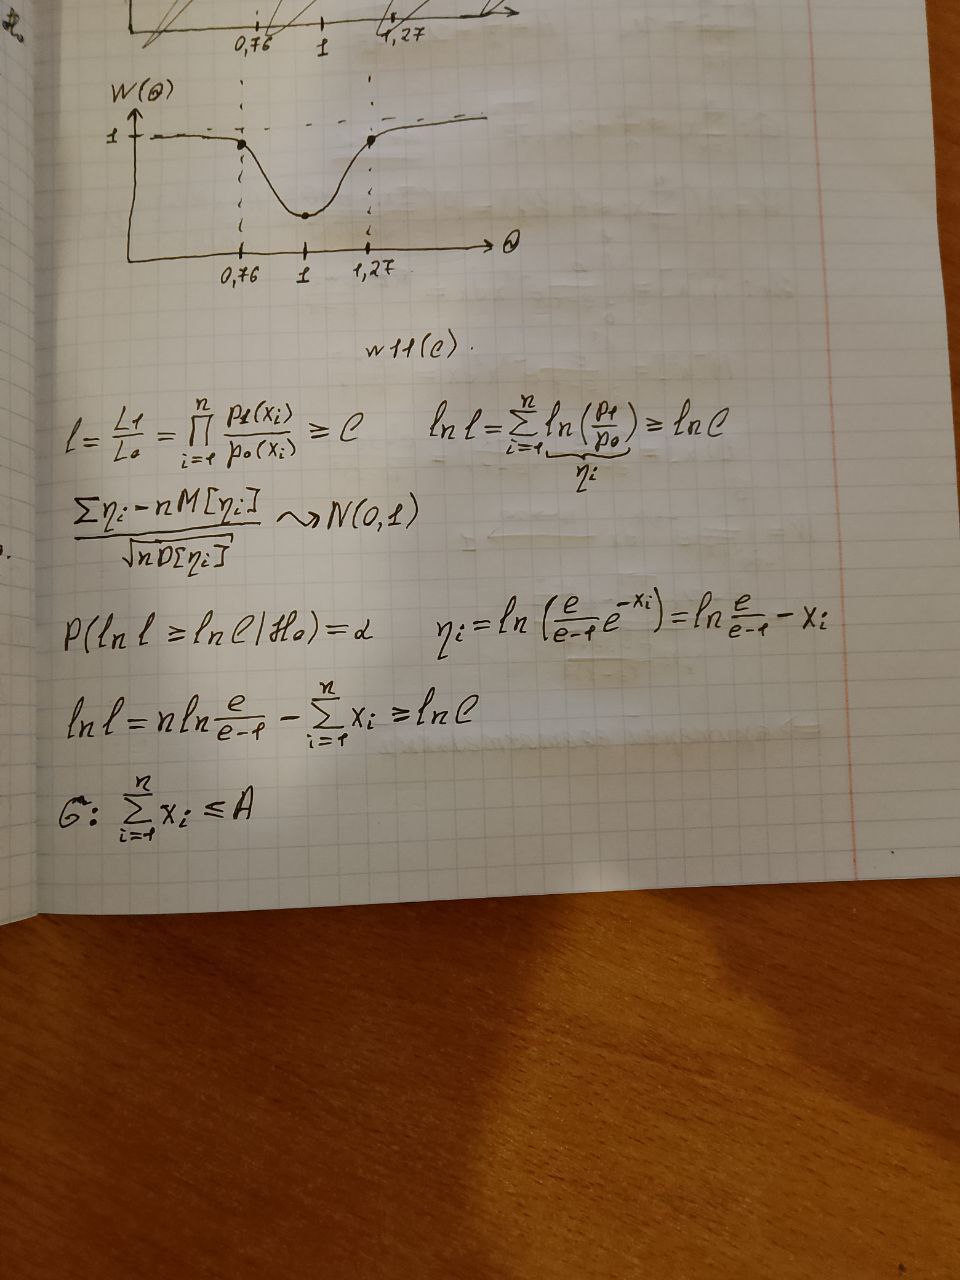 0,76 1 1,27
W(θ)
1
θ
0,76 1 1,27
w11(c).
l = L1/L0 = ∏_{i=1}^{n} p1(xi)/p0(xi) ≥ C ln l = ∑_{i=1}^{n} ln(p1/p0) ≥ ln C
ηi
(∑ηi - nM[ηi])/√(nD[ηi]) ⇝ N(0,1)
P(ln l ≥ ln C | H0) = α ηi = ln(e/(e-1) e^{-xi}) = ln e/(e-1) - xi
ln l = n ln e/(e-1) - ∑_{i=1}^{n} xi ≥ ln C
G: ∑_{i=1}^{n} xi ≤ A